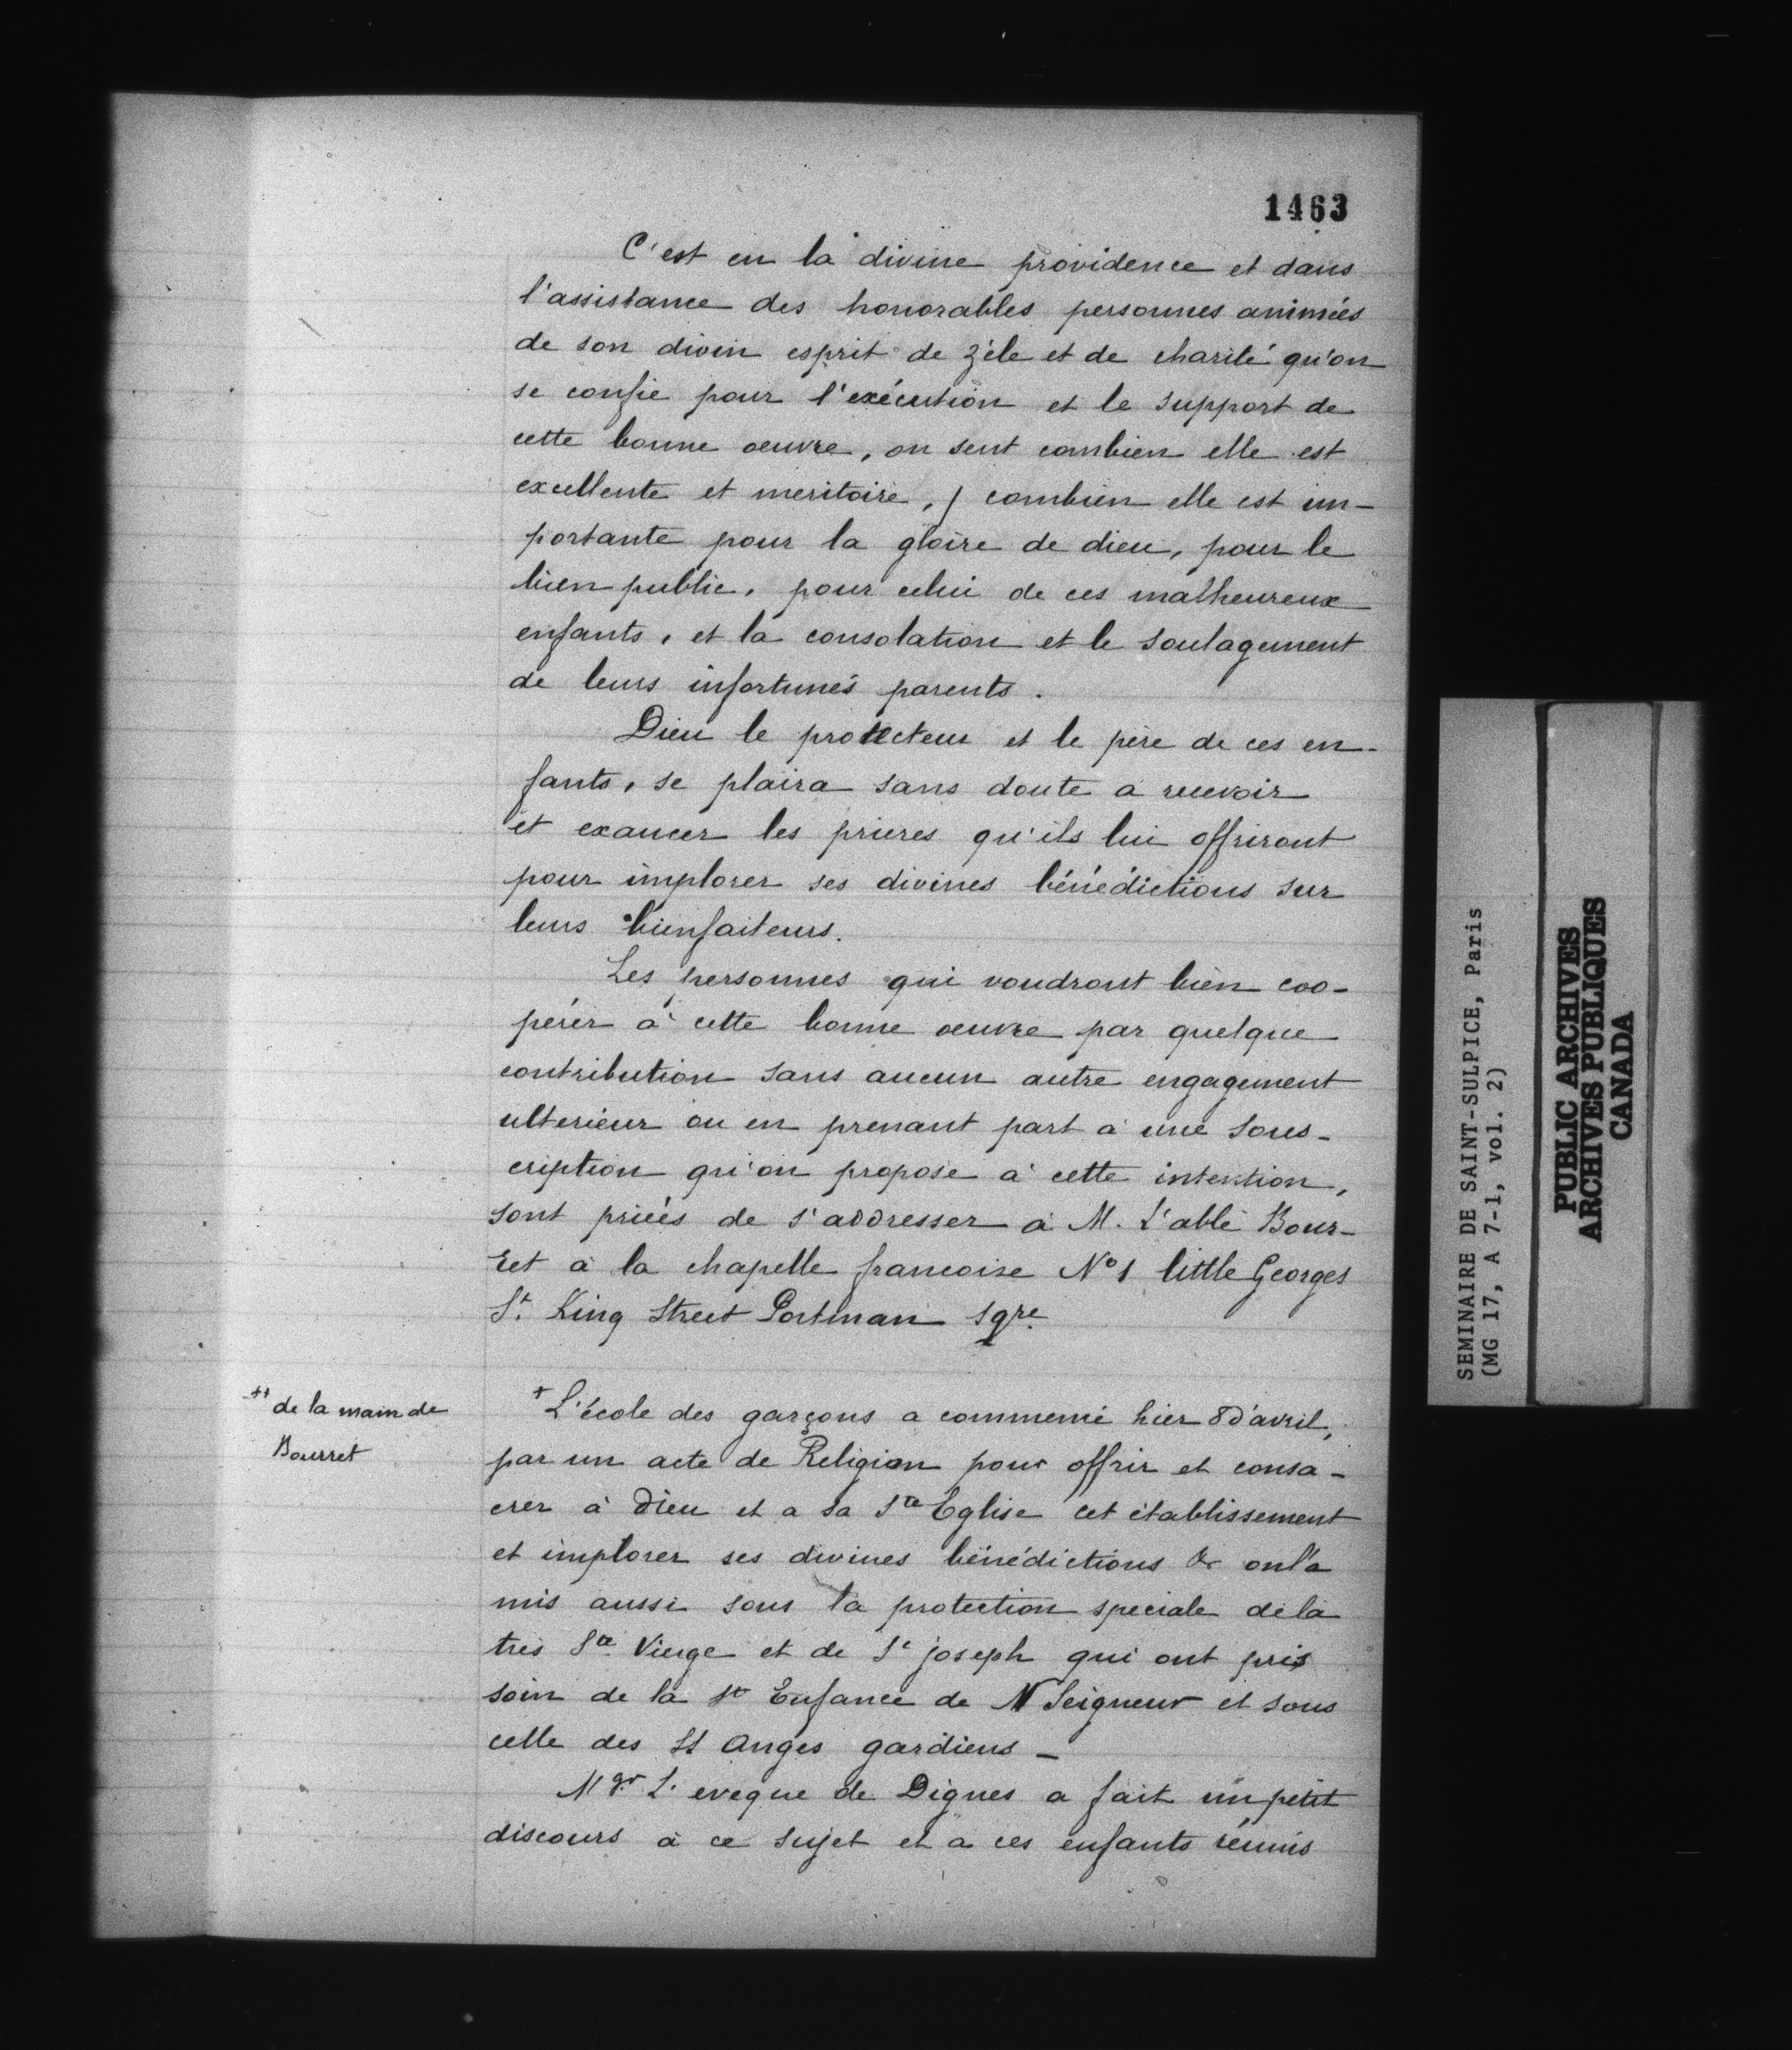 1463
C'est en la divine providence et dans
l'assistance des honorables personnes animées
de son divin esprit de zéle et de charité qu'on
se confie pour l'exécution et le support de
cette bonne oeuvre, on sent combien elle est
excellente et meritoire, combien elle est im-
portante pour la gloire de dieu, pour le
bien public, pour celui de ces malheureux
enfants, et la consolation et le soulagement
de leurs infortunés parents.
Dieu le protecteur et le père de ces en-
fants, se plaira sans doute a recevoir
et exaucer les prieres qu'ils lui offriront
pour implorer ses divines bénédictions sur
leurs bienfaiteurs.
Les personnes qui voudront bien coo-
pérer à cette bonne oeuvre par quelque
contribution sans aucun autre engagement
ulterieur ou en prenant part à une sous-
cription qu'on propose à cette intention,
sont priées de s'addresser à M. L'abbé Bour-
ret à la chapelle francoise N° 1 little Georges
St. King Street Portman sqre
++ de la main de
Bourret
+ L'école des garçons a commencé hier 8 d'avril,
par un acte de Religion pour offrir et consa-
crer à Dieu et a sa Ste Eglise cet établissement
et implorer ses divines bénédictions & on l'a
mis aussi sous la protection speciale de la
tres Ste Vierge et de St joseph qui ont pris
soin de la Ste Enfance de N Seigneur et sous
celle des SS Anges gardiens –
Mgr L'eveque de Dignes a fait un petit
discours à ce sujet et a ces enfants réunis
SEMINAIRE DE SAINT-SULPICE, Paris
(MG 17, A 7-1, vol. 2)
PUBLIC ARCHIVES
ARCHIVES PUBLIQUES
CANADA